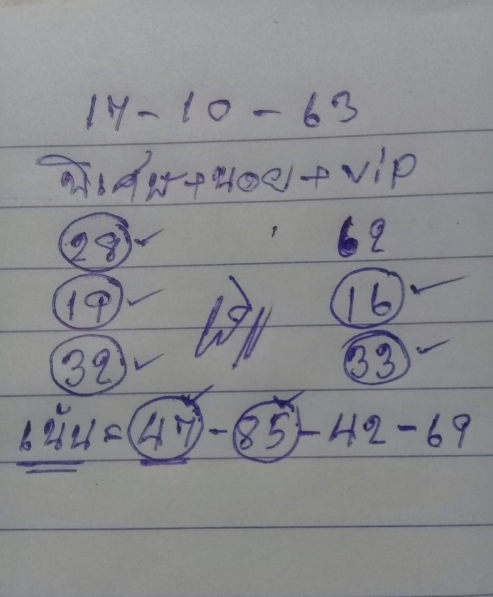 17-10-63
พิเศษ+นอย+vip
28 62
19 16
32 33
เน้น=47-85-42-69